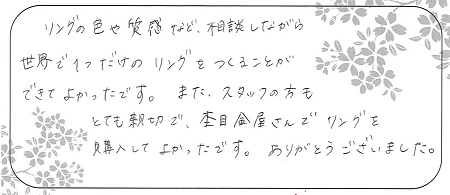 リングの色や質感など、相談しながら
世界で1つだけのリングをつくることが
できてよかったです。また、スタッフの方も
とても親切で、杢目金屋さんでリングを
購入してよかったです。ありがとうございました。